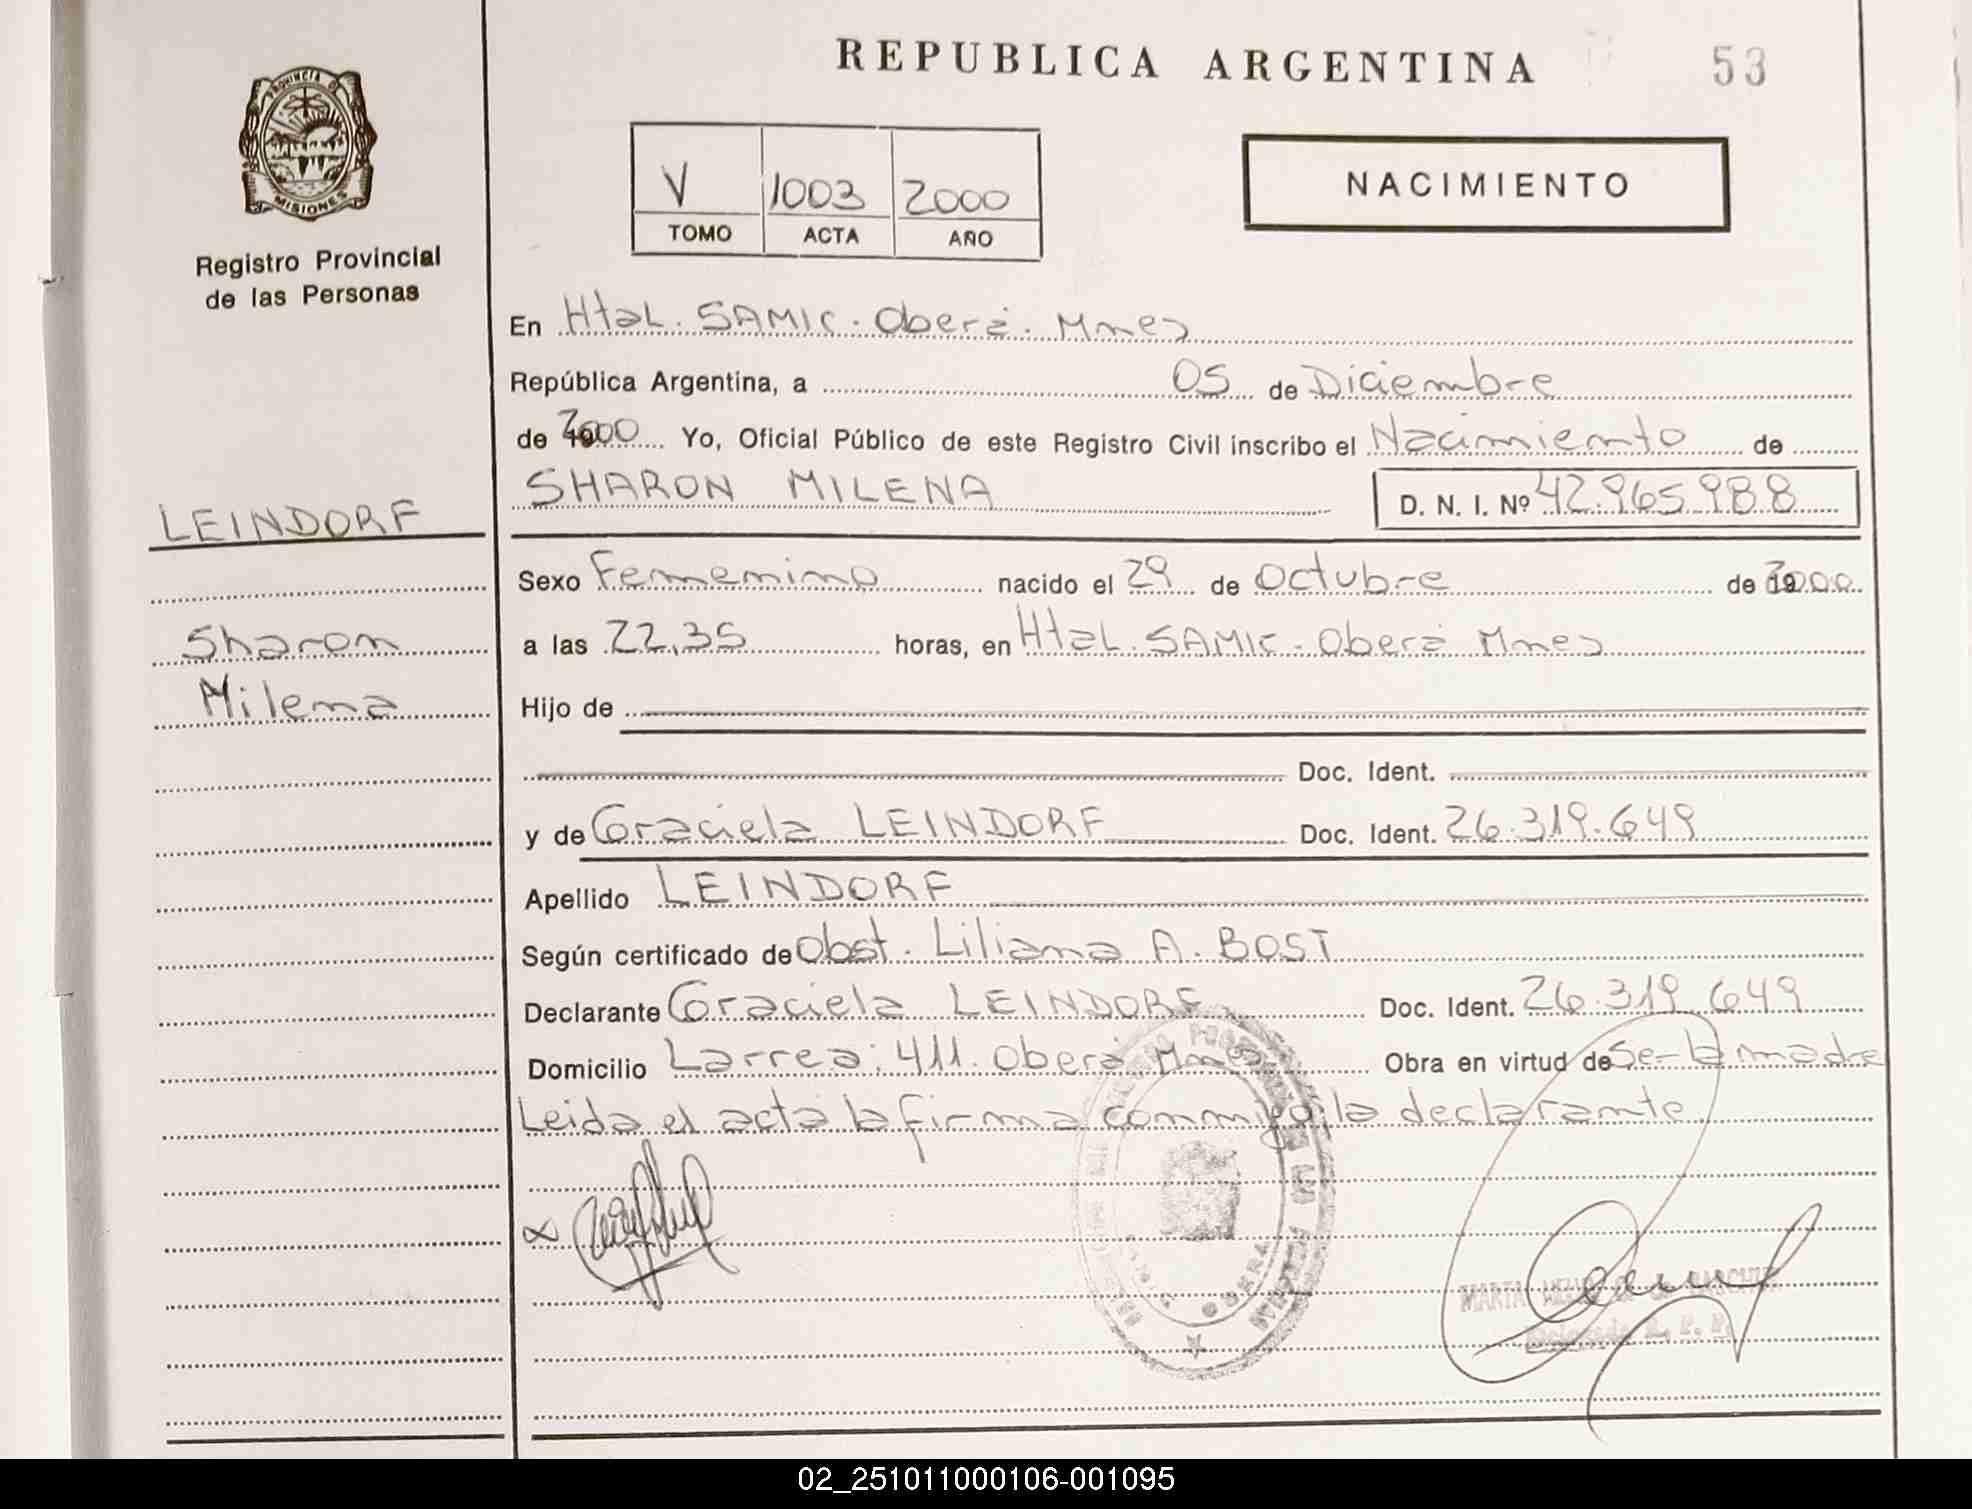 REPUBLICA ARGENTINA
53
PROVINCIA DE
MISIONES
Registro Provincial
de las Personas
V 1003 2000
TOMO ACTA AÑO
NACIMIENTO
En Htal. SAMIC. Oberá. Mnes
República Argentina, a 05 de Diciembre
de 2000 Yo, Oficial Público de este Registro Civil inscribo el Nacimiento de
SHARON MILENA D. N. I. Nº 42.965.988
LEINDORF
Sexo Femenino nacido el 29 de Octubre de 2000
Sharon
a las 22,35 horas, en Htal. SAMIC. Oberá Mnes
Milena
Hijo de
Doc. Ident.
y de Graciela LEINDORF Doc. Ident. 26.319.649
Apellido LEINDORF
Según certificado de Obst. Liliana A. BOST
Declarante Graciela LEINDORF Doc. Ident. 26.319.649
Domicilio Larrea: 411. Oberá Mnes Obra en virtud de Ser la madre
Leida el acta la firma conmigo la declarante
MARTA
R. P. P.
OBERA
02_251011000106-001095